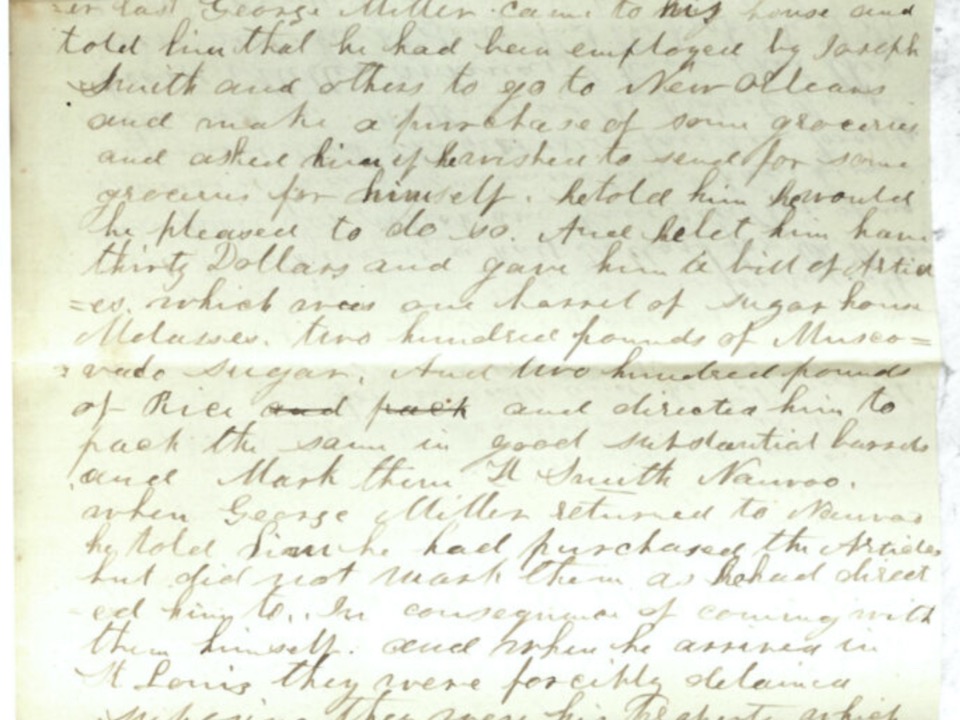 er last George Miller came to his house and
told him that he had been employed by Joseph
Smith and others to go to New Orleans
and make a purchase of some groceries
and asked him if he wished to send for some
groceries for himself. he told him he would
be pleased to do so. And he let him have
thirty Dollars and gave him a bill of Artic
=es. which was one barrel of sugar house
Molasses. two hundred pounds of Musco=
=vado sugar. And two hundred pounds
of Rice and pack and directed him to
pack the same in good substantial barrels
and Mark them H Smith Nauvoo.
when George Miller returned to Nauvoo
he told him he had purchased the Articles
but did not mark them as he had direct
-ed him to. In consequence of coming with
them himself. and when he arrived in
St Louis they were forcibly detained
they were his property which